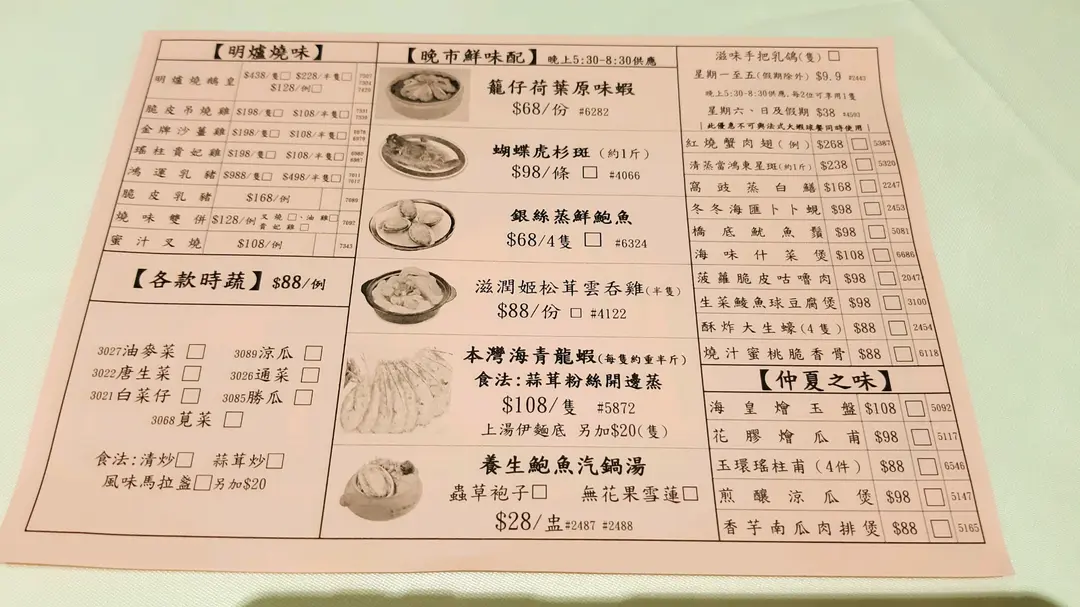 【明爐燒味】
明爐燒鵝皇 $438/隻□ $228/半隻□
$128/例□
脆皮吊燒雞 $198/隻□ $108/半隻□
金牌沙薑雞 $198/隻□ $108/半隻□
瑤柱貴妃雞 $198/隻□ $108/半隻□
鴻運乳豬 $988/隻□ $498/半隻□
脆皮乳豬 $168/例
燒味雙併 $128/例 叉燒□、油雞□
貴妃雞□
蜜汁叉燒 $108/例
【各款時蔬】$88/例
3027油麥菜 □ 3089涼瓜 □
3022唐生菜 □ 3026通菜 □
3021白菜仔 □ 3085勝瓜 □
3068莧菜 □
食法:清炒□ 蒜茸炒□
風味馬拉盞□另加$20
【晚市鮮味配】晚上5:30-8:30供應
籠仔荷葉原味蝦
$68/份 #6282
蝴蝶虎杉斑 (約1斤)
$98/條 □ #4066
銀絲蒸鮮鮑魚
$68/4隻 □ #6324
滋潤姬松茸雲吞雞(半隻)
$88/份 □ #4122
本灣海青龍蝦(每隻約重半斤)
食法:蒜茸粉絲開邊蒸
$108/隻 #5872
上湯伊麵底 另加$20(隻)
養生鮑魚汽鍋湯
蟲草袍子□ 無花果雪蓮□
$28/盅 #2487 #2488
滋味手把乳鴿(隻) □
星期一至五(假期除外) $9.9 #2442
晚上5:30-8:30供應,每2位可享用1隻
星期六、日及假期 $38 #4503
此優惠不可與法式大蝦球餐同時使用
紅燒蟹肉翅(例) $268 □ 5387
清蒸當鴻東星斑(約1斤) $238 □ 5320
窩豉蒸白鱔 $168 □ 2247
冬冬海匯卜卜蜆 $98 □ 2453
橋底魷魚鬚 $98 □ 5081
海味什菜煲 $108 □ 6686
菠蘿脆皮咕嚕肉 $98 □ 2047
生菜鯪魚球豆腐煲 $98 □ 3100
酥炸大生蠔(4隻) $88 □ 2454
燒汁蜜桃脆香骨 $88 □ 6118
【仲夏之味】
海皇燴玉盤 $108 □ 5092
花膠燴瓜甫 $98 □ 5117
玉環瑤柱甫(4件) $88 □ 6546
煎釀涼瓜煲 $98 □ 5147
香芋南瓜肉排煲 $88 □ 5165